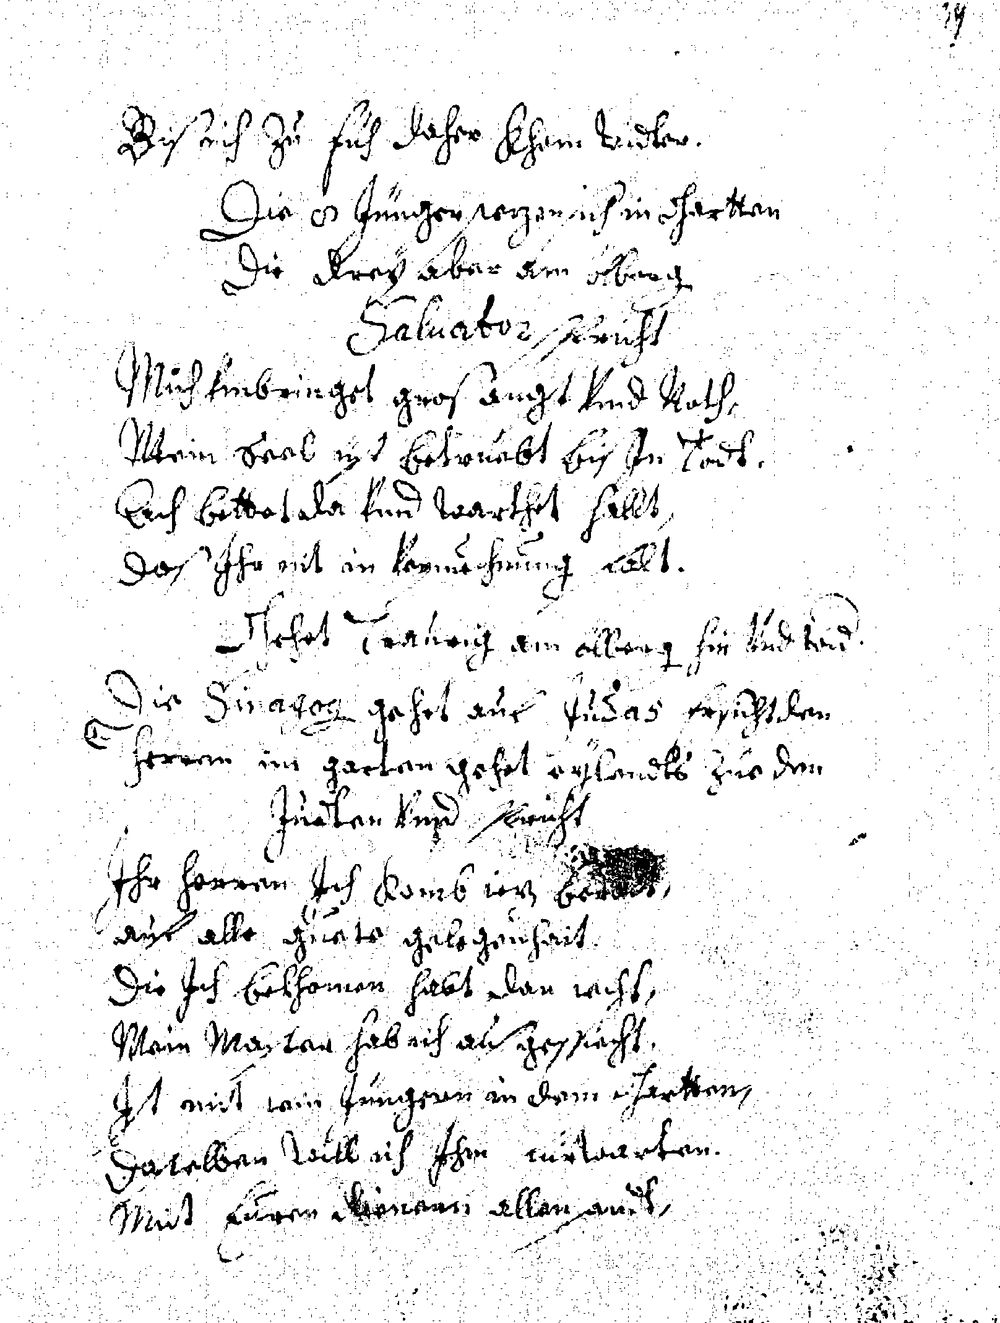 39
Bis ich zu euch daher khem wider.
Die 8 Jünger sezen sich in Gartten
Die drey aber am ölberg
Saluator spricht
Mich umbringet gros angst vnd Noth,
Mein Seel ist betruebt bis In Todt.
Euch bettet da vnd warthet hallt,
Das Ihr nit in versuechnung falt.
Gehet Traurig am ölberg hin vnd wid.
Die Sinagog gehet auf Judas ersicht den
herren im garten gehet eylendts zue den
Juden vnd spricht
Ihr herren Ich komb iez bereit,
auf alle guete gelegenhait
Die Ich bekhomen habt dan acht,
Mein Maister hab ich ausgespecht.
Ist mit sein Jüngern in dem Gartten,
Daselben will ich Ihm aufwarten.
Mit Euren dienern allen sandt,